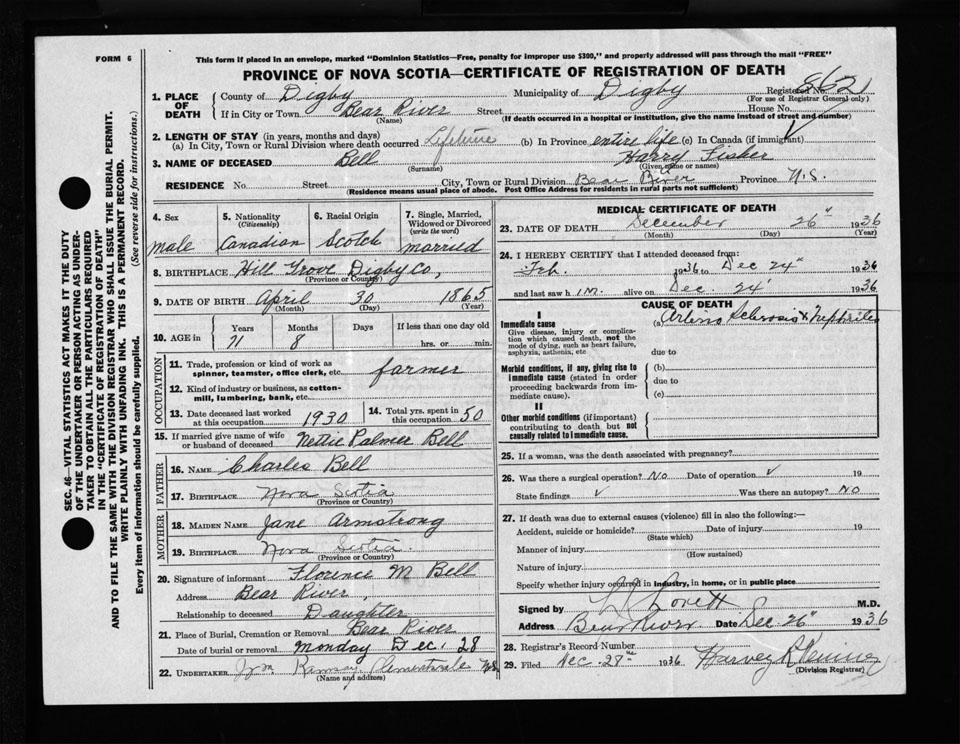 FORM 6
This form if placed in an envelope, marked "Dominion Statistics—Free, penalty for improper use $300," and properly addressed will pass through the mail "FREE"
PROVINCE OF NOVA SCOTIA—CERTIFICATE OF REGISTRATION OF DEATH
862
1. PLACE OF DEATH
County of Digby Municipality of Digby Registered No.
(For use of Registrar General only)
If in City or Town Bear River Street House No.
(Name) (If death occurred in a hospital or institution, give the name instead of street and number)
2. LENGTH OF STAY (in years, months and days)
(a) In City, Town or Rural Division where death occurred Lifetime (b) In Province entire life (c) In Canada (if immigrant) ✓
3. NAME OF DECEASED Bell Harry Fisher
(Surname) (Given name or names)
RESIDENCE No. Street City, Town or Rural Division Bear River Province N.S.
(Residence means usual place of abode. Post Office Address for residents in rural parts not sufficient)
4. Sex male
5. Nationality (Citizenship) Canadian
6. Racial Origin Scotch
7. Single, Married, Widowed or Divorced (write the word) married
8. BIRTHPLACE Hill Grove Digby Co,
(Province or Country)
9. DATE OF BIRTH April 30 1865
(Month) (Day) (Year)
10. AGE in Years Months Days If less than one day old
71 8 hrs. or min.
OCCUPATION
11. Trade, profession or kind of work as spinner, teamster, office clerk, etc. farmer
12. Kind of industry or business, as cotton-mill, lumbering, bank, etc.
13. Date deceased last worked at this occupation 1930
14. Total yrs. spent in this occupation 50
15. If married give name of wife or husband of deceased Nettie Palmer Bell
FATHER
16. NAME Charles Bell
17. BIRTHPLACE Nova Scotia
(Province or Country)
MOTHER
18. MAIDEN NAME Jane Armstrong
19. BIRTHPLACE Nova Scotia
(Province or Country)
20. Signature of informant Florence M Bell
Address Bear River,
Relationship to deceased Daughter
21. Place of Burial, Cremation or Removal Bear River
Date of burial or removal Monday Dec. 28
22. UNDERTAKER Ramsay, Clementsvale N.S.
(Name and address)
MEDICAL CERTIFICATE OF DEATH
23. DATE OF DEATH December 26" 1936
(Month) (Day) (Year)
24. I HEREBY CERTIFY that I attended deceased from:
Feb. 1936 to Dec 24" 1936
and last saw h im alive on Dec 24' 1936
CAUSE OF DEATH
I
Immediate cause
Give disease, injury or complication which caused death, not the mode of dying, such as heart failure, asphyxia, asthenia, etc
(a) Arterio Sclerosis & Nephritis
due to
Morbid conditions, if any, giving rise to immediate cause (stated in order proceeding backwards from immediate cause).
(b)
due to
(c)
II
Other morbid conditions (if important) contributing to death but not causally related to immediate cause.
25. If a woman, was the death associated with pregnancy?
26. Was there a surgical operation? No Date of operation ✓ 19
State findings ✓ Was there an autopsy? No
27. If death was due to external causes (violence) fill in also the following:—
Accident, suicide or homicide? Date of injury 19
(State which)
Manner of injury
(How sustained)
Nature of injury
Specify whether injury occurred in industry, in home, or in public place
Signed by Lovett M.D.
Address Bear River Date Dec 26" 1936
28. Registrar's Record Number
29. Filed Dec. 28th 1936 Harvey
(Division Registrar)
SEC. 46—VITAL STATISTICS ACT MAKES IT THE DUTY
OF THE UNDERTAKER OR PERSON ACTING AS UNDER-
TAKER TO OBTAIN ALL THE PARTICULARS REQUIRED
IN THE "CERTIFICATE OF REGISTRATION OF DEATH"
AND TO FILE THE SAME WITH THE DIVISION REGISTRAR WHO SHALL ISSUE THE BURIAL PERMIT.
WRITE PLAINLY WITH UNFADING INK. THIS IS A PERMANENT RECORD.
Every item of information should be carefully supplied. (See reverse side for instructions.)